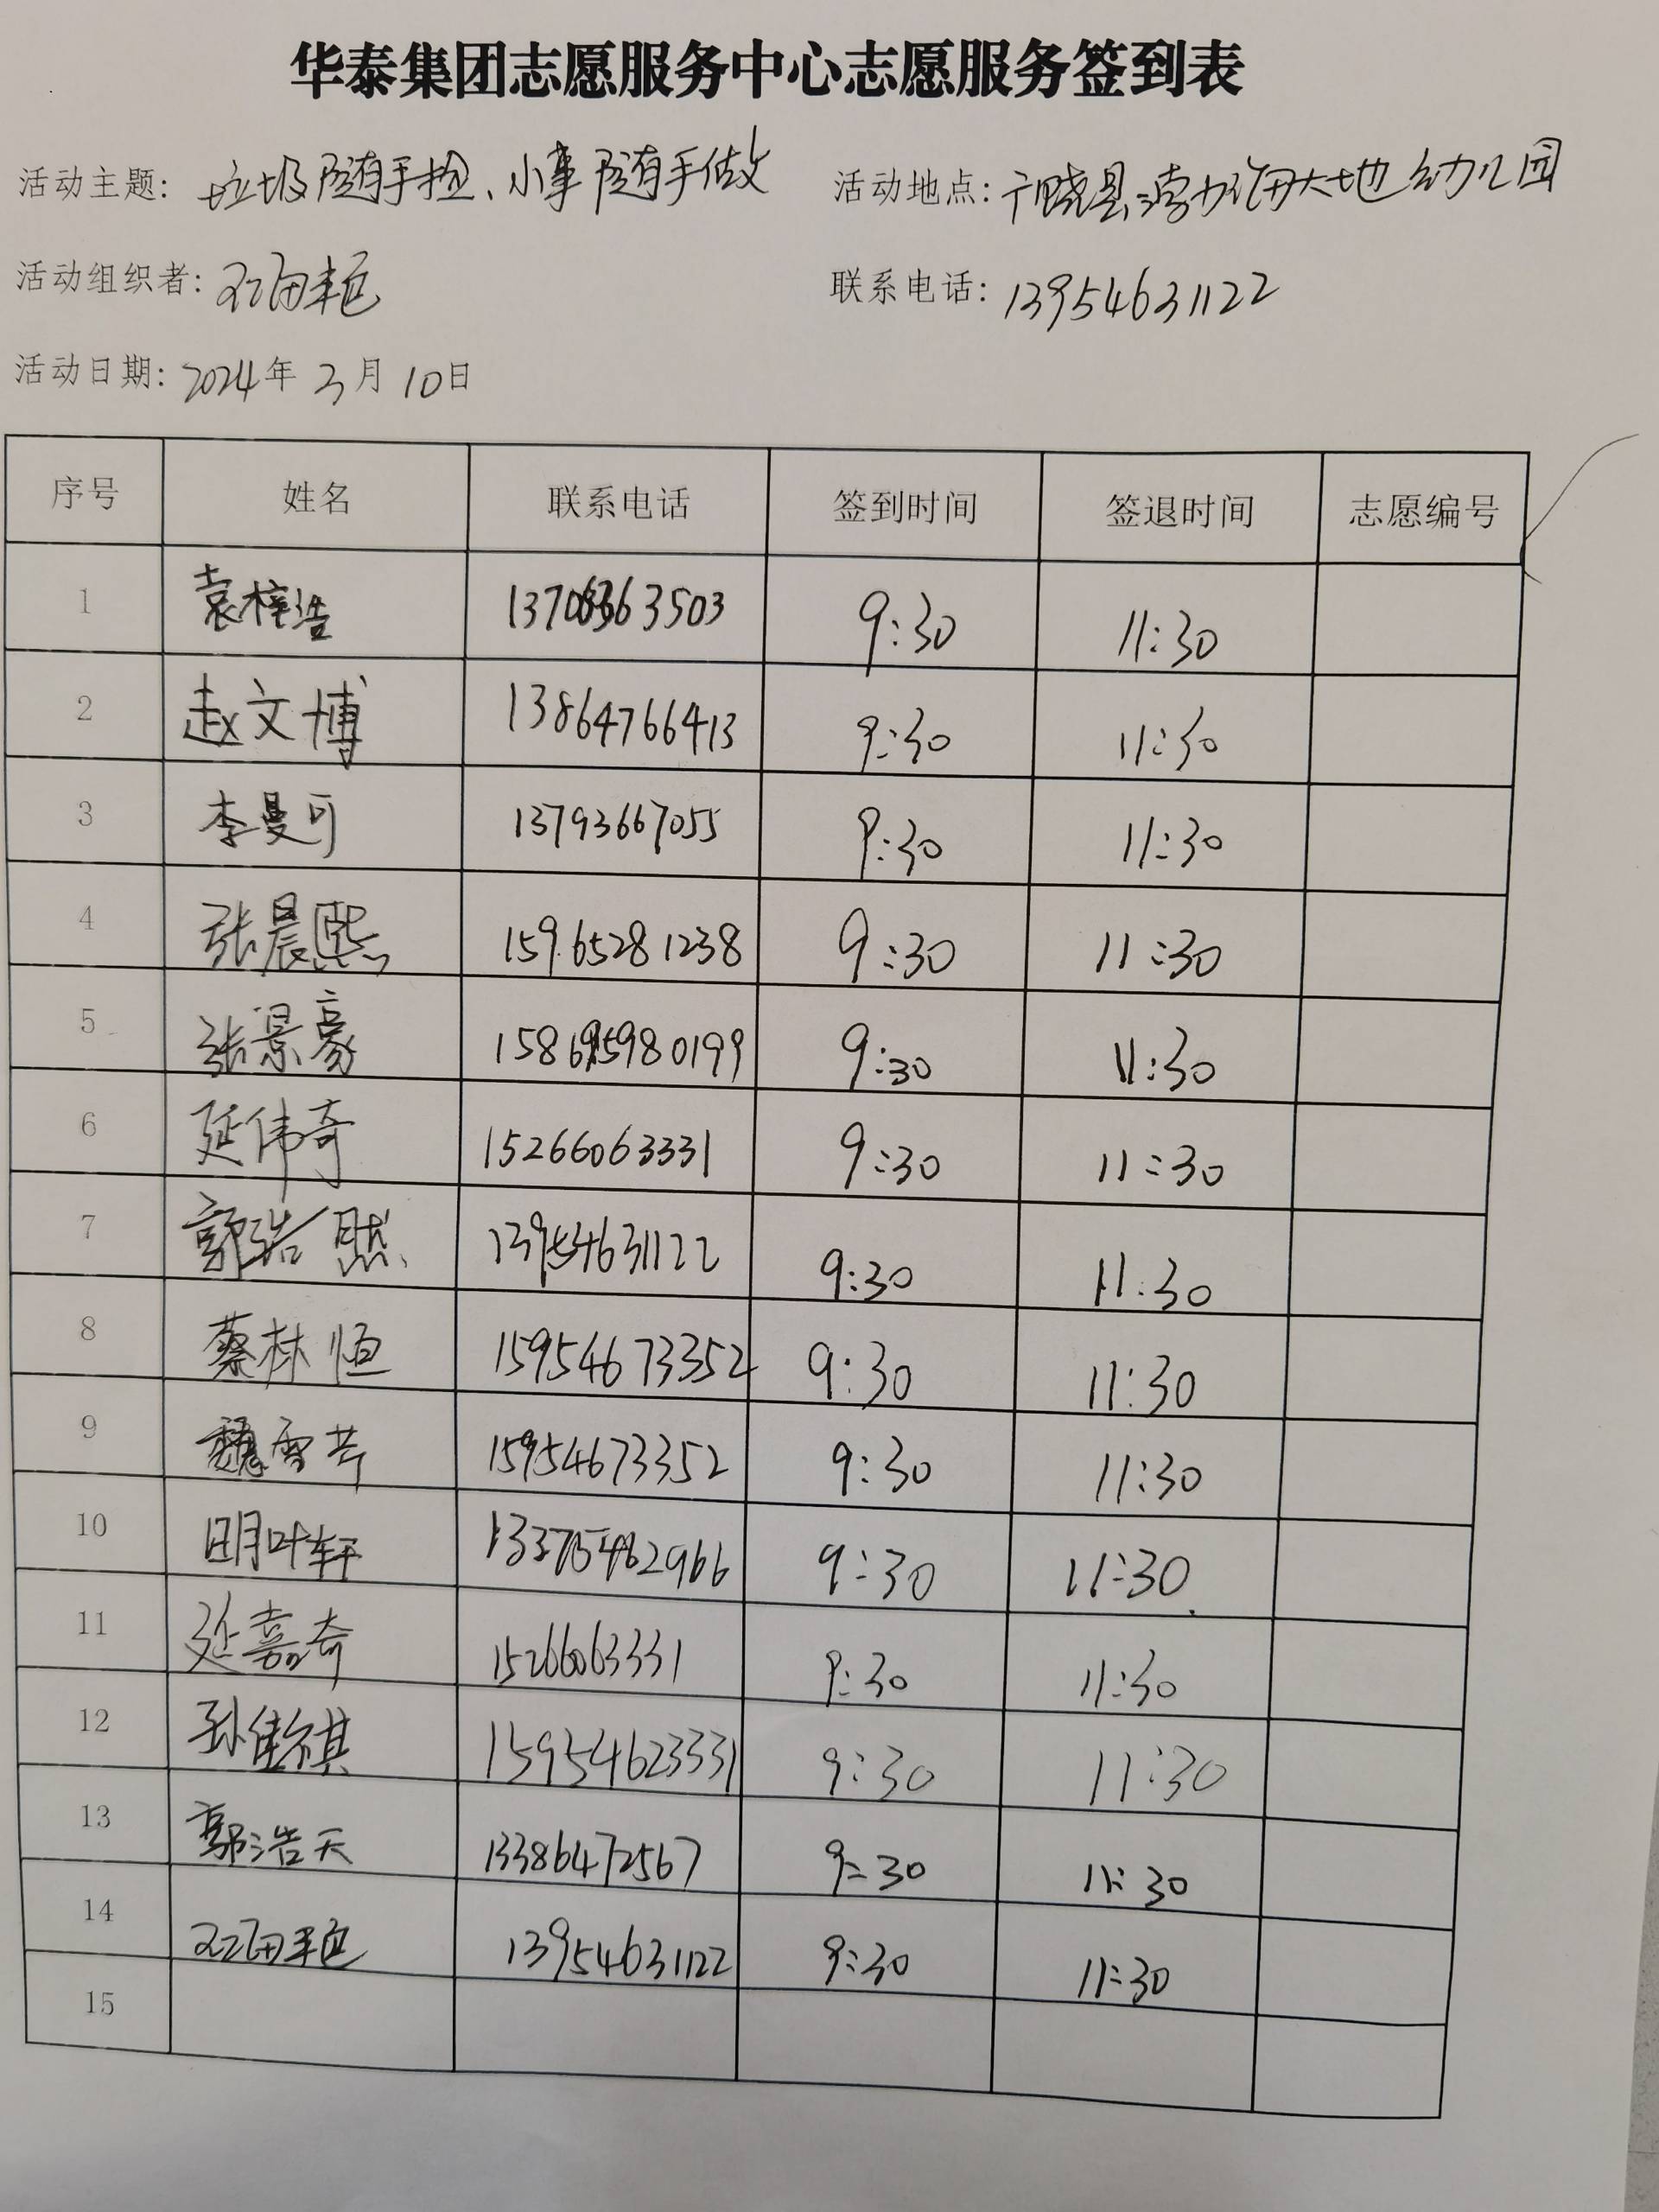 华泰集团志愿服务中心志愿服务签到表
活动主题: 垃圾随手捡、小事随手做 活动地点: 广饶县渤海大地幼儿园
活动组织者: 联系电话: 13954631122
活动日期: 2024年3月10日
序号 姓名 联系电话 签到时间 签退时间 志愿编号
1 袁梓浩 9:30 11:30
2 赵文博 13864766413 9:30 11:30
3 李曼可 13793667055 9:30 11:30
4 张晨熙 15965281238 9:30 11:30
5 张景豪 9:30 11:30
6 延伟奇 15266063331 9:30 11:30
7 郭浩然 13954631122 9:30 11:30
8 蔡林恒 15954673352 9:30 11:30
9 魏雪芹 15954673352 9:30 11:30
10 明叶轩 9:30 11:30
11 延嘉奇 15266063331 9:30 11:30
12 15954623331 9:30 11:30
13 郭浩天 13386472567 9:30 11:30
14 13954631122 9:30 11:30
15